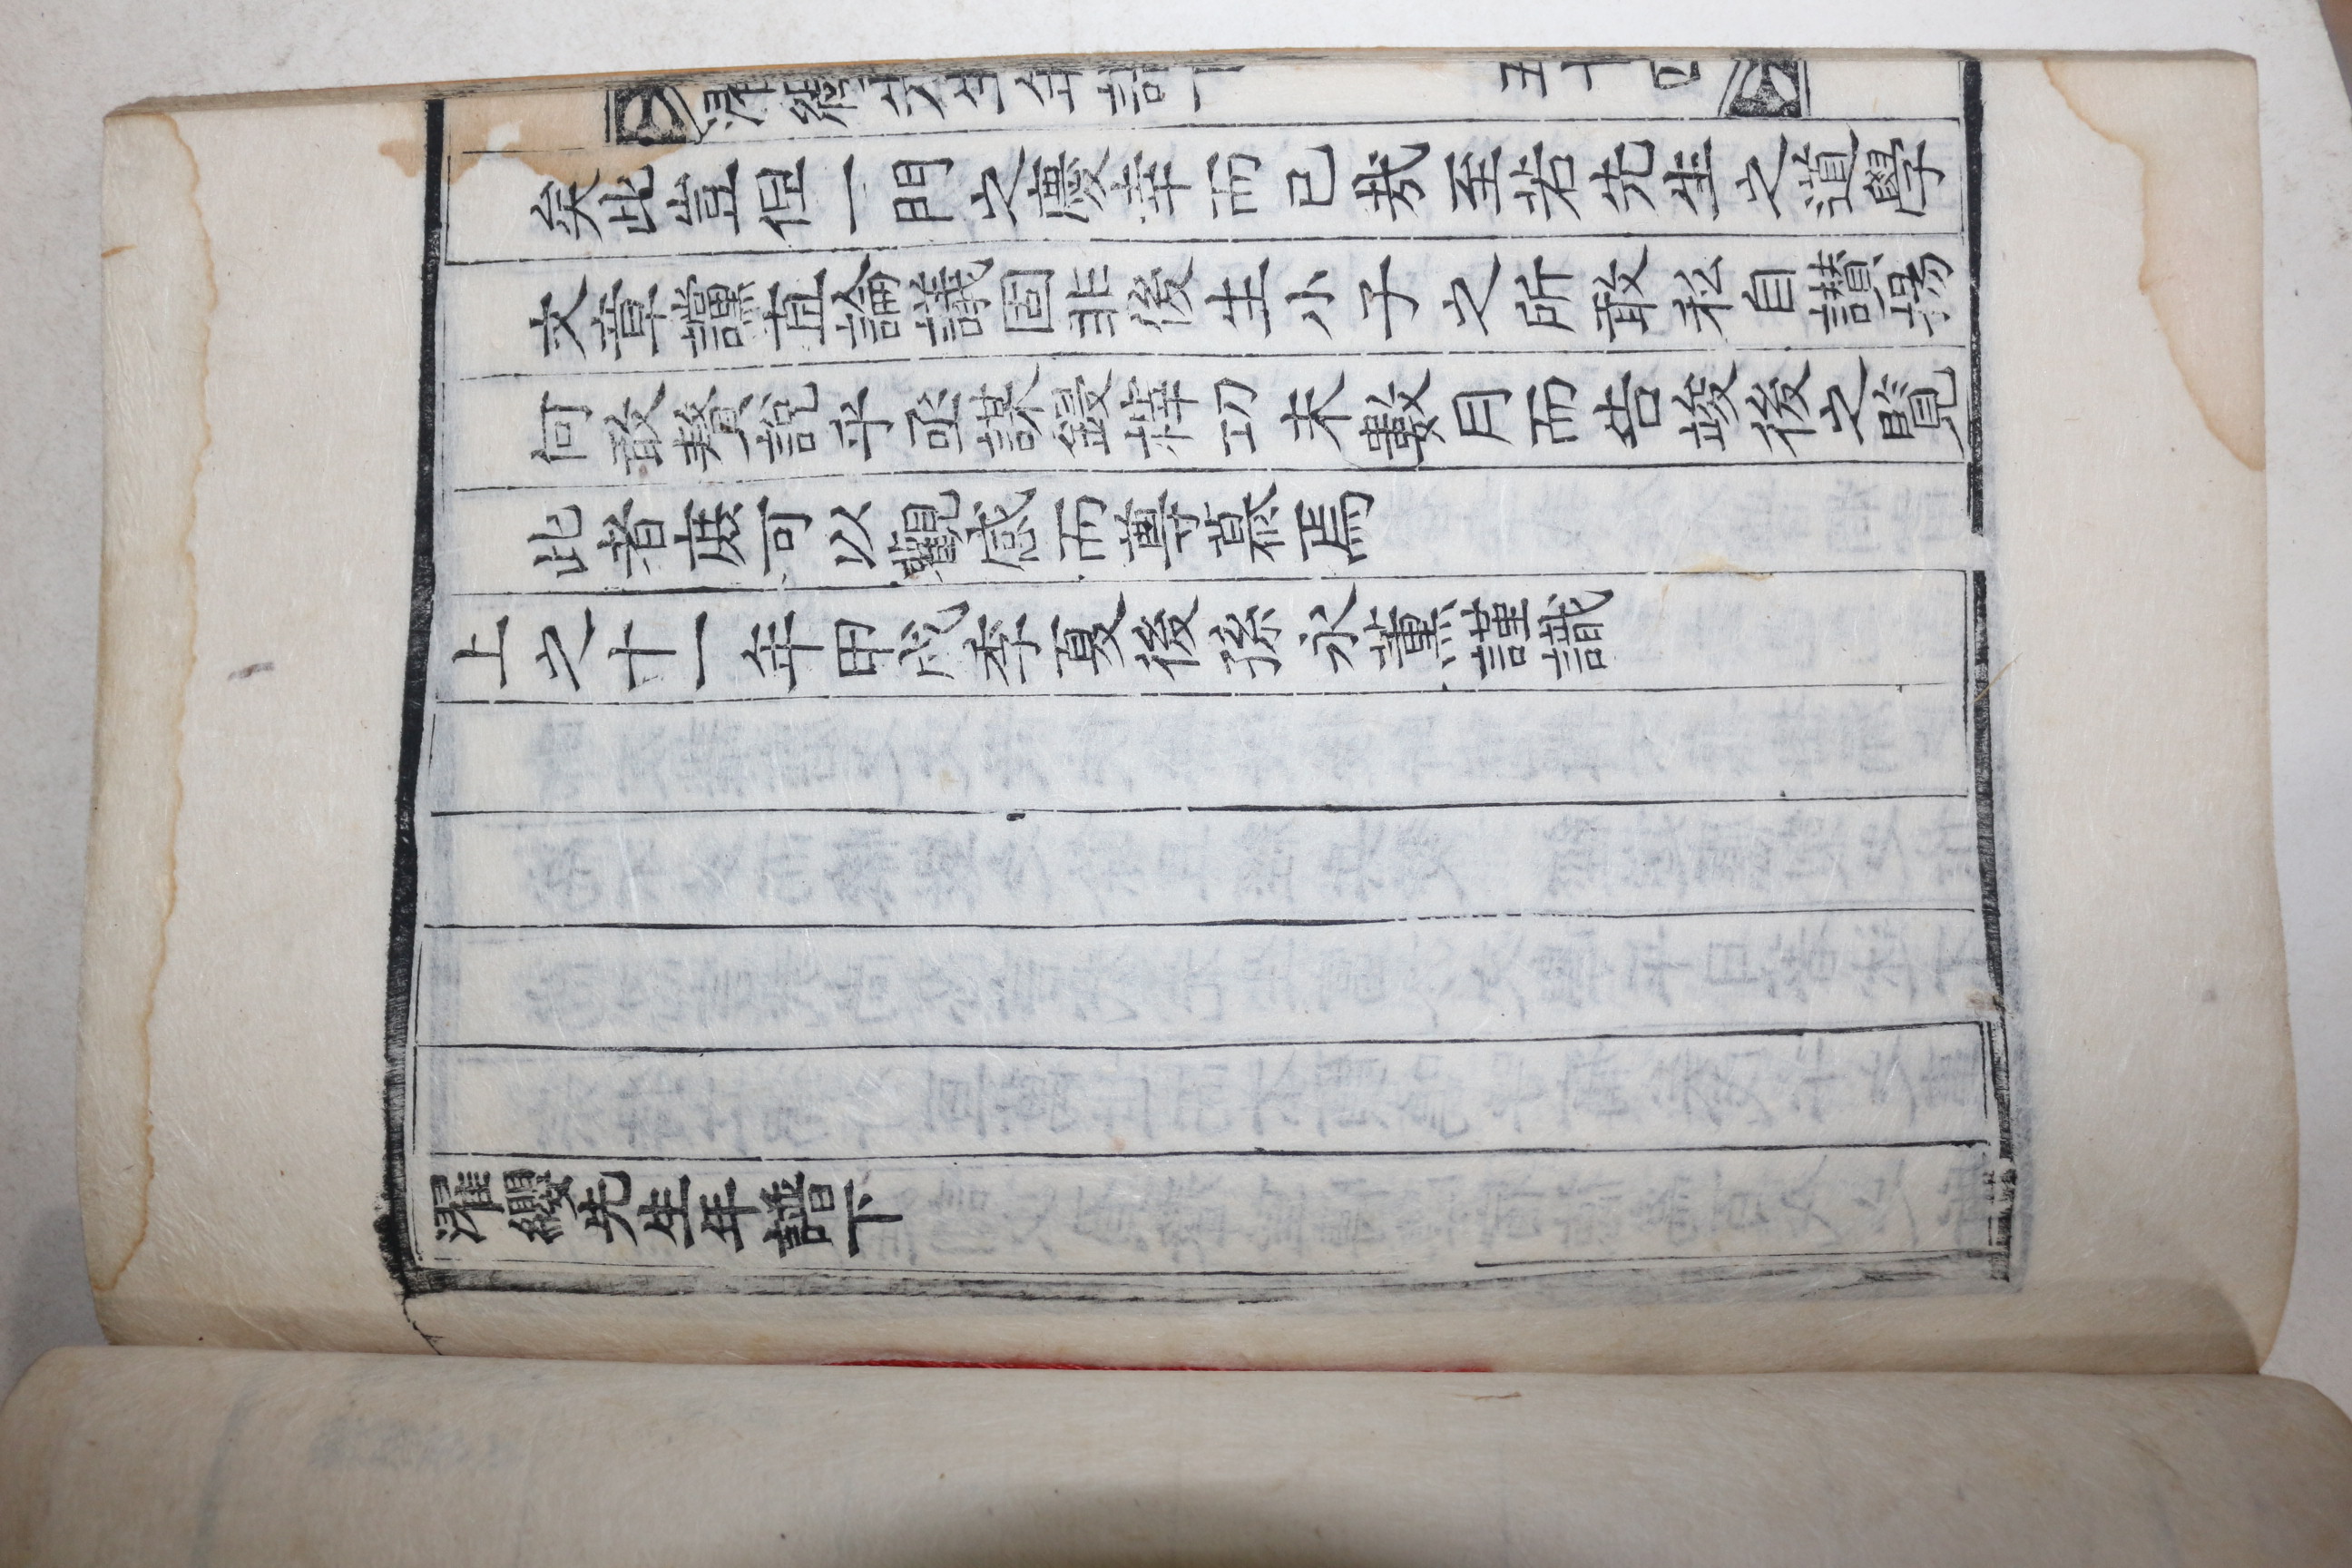 濯纓先生年譜下
五十四
矣此豈但一門之慶幸而已㦲至若先生之道學
文章讜直論議固非後生小子之所敢私自讚揚
何敢贅說乎亟謀鋟梓功未數月而告竣後之覽
此者庶可以觀感而尊慕焉
上之十一年甲戌季夏後孫永薰謹識
濯纓先生年譜下